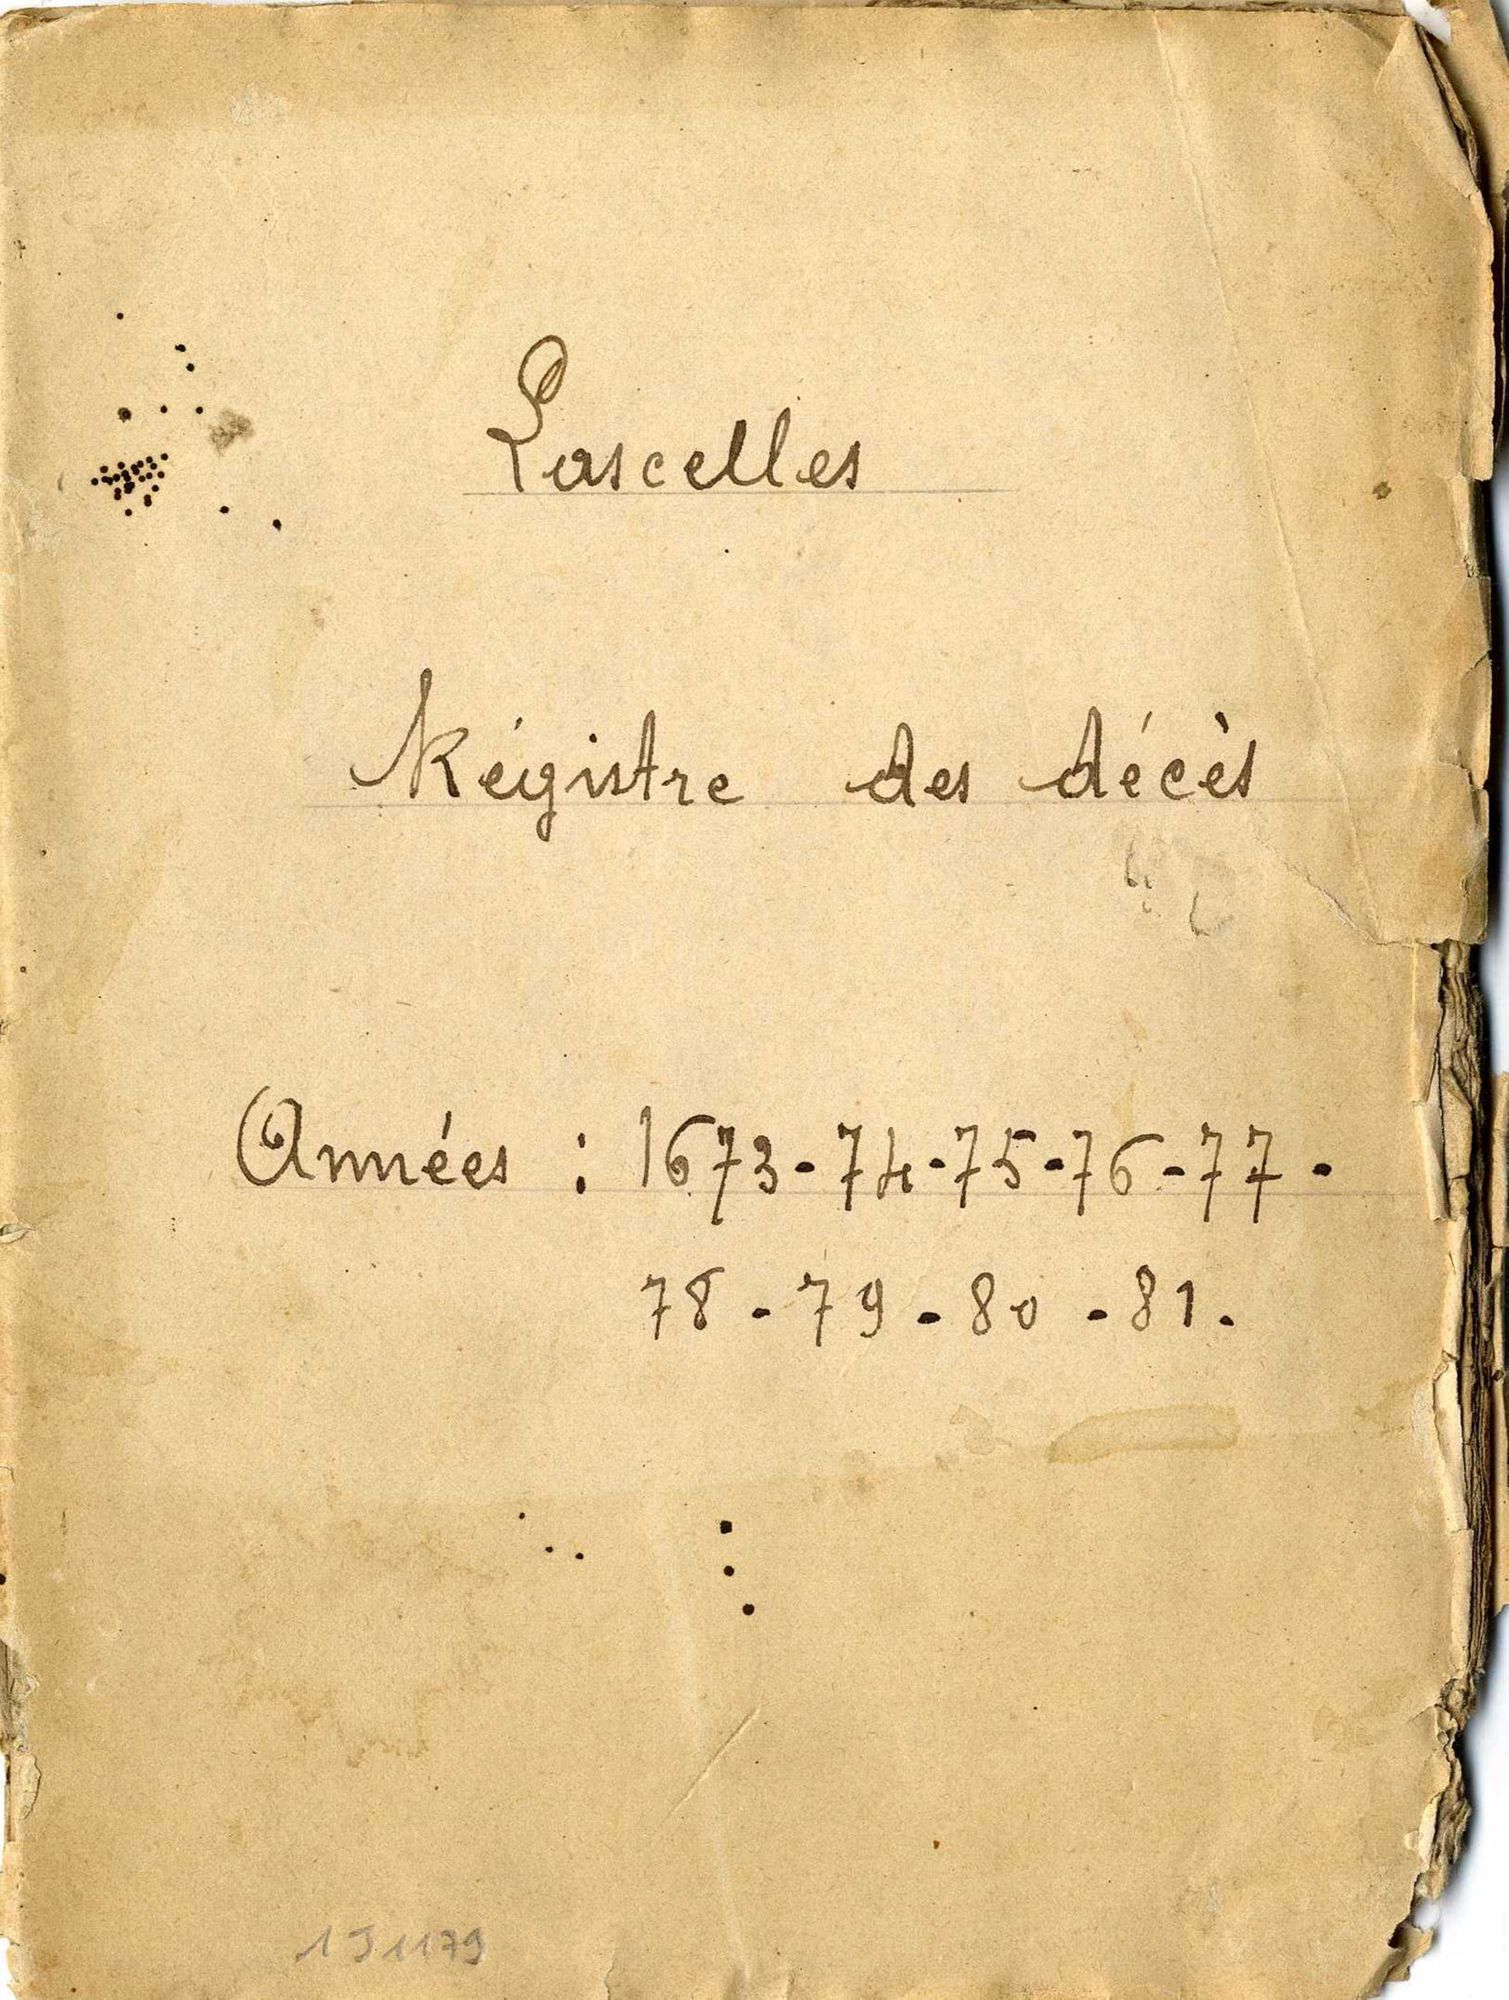 Lascelles
Régistre des décès
Années : 1673-74-75-76-77-
78-79-80-81.
1J1179